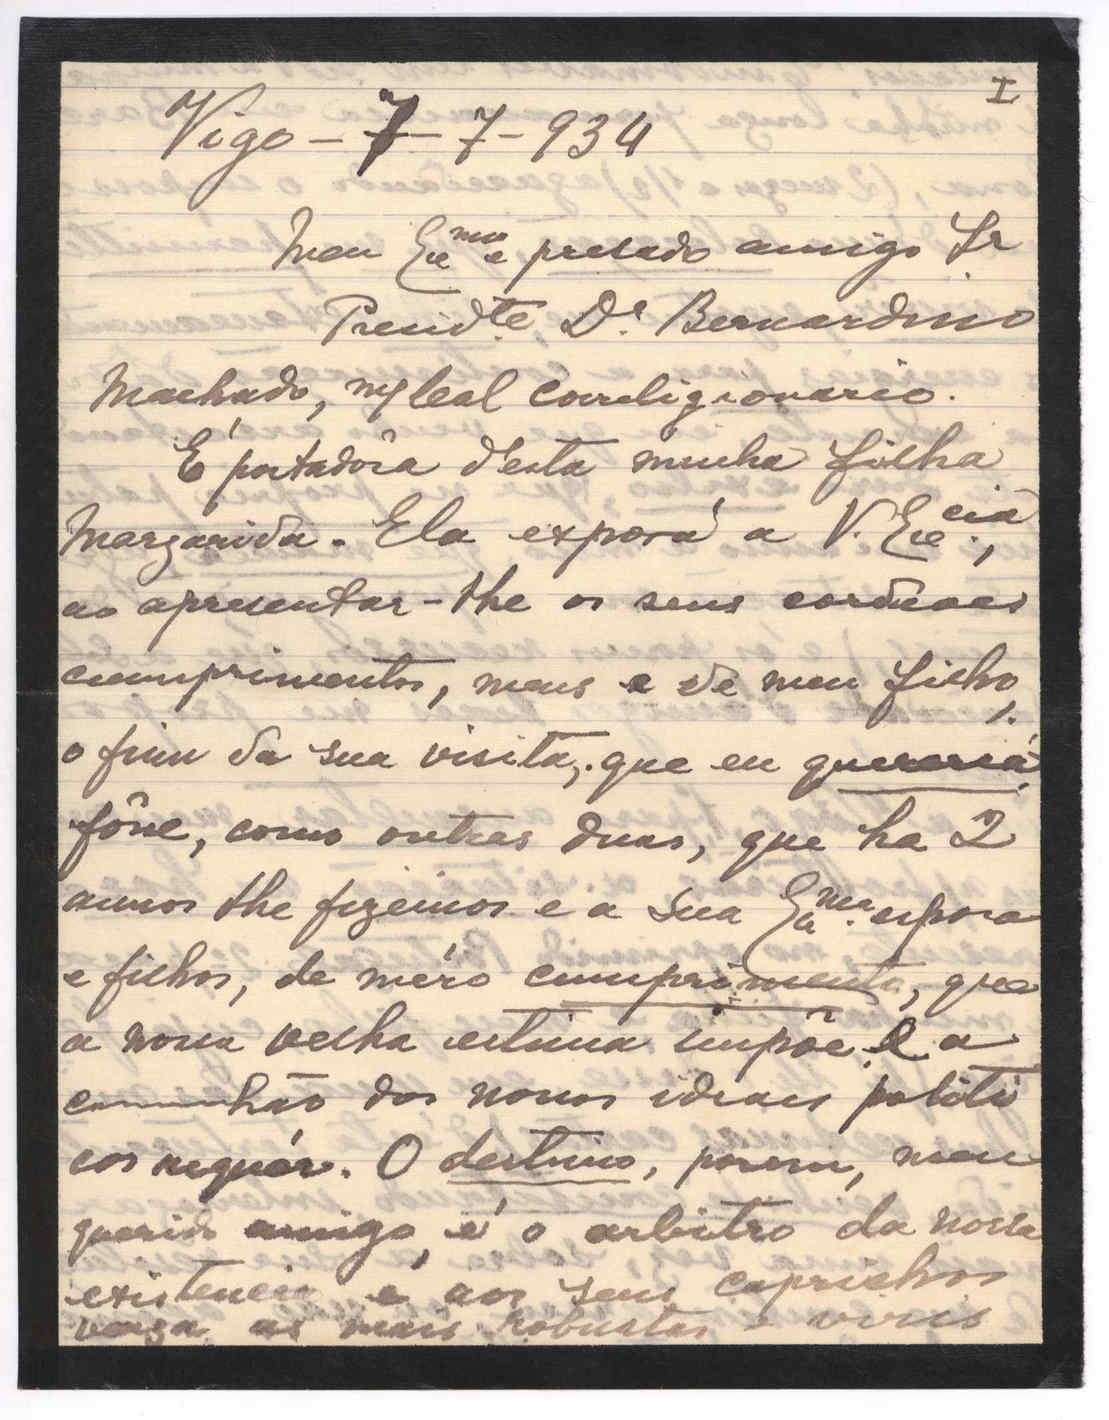 I
Vigo - 7 - 7 - 934
Meu Exmo e presado amigo Sr
Presidte Dr. Bernardino
Machado, leal correligionario.
É portadôra d'esta minha filha
Margarida. Ela exporá a V. Excia.,
ao apresentar-lhe os seus cordeaes
cumprimentos, meus e de meu filho,
o fim da sua visita, que eu quereria
fôsse, como outras duas, que ha 2
annos lhe fizemos e a sua Exma. esposa
e filhos, de méro cumprimento, que
a nossa velha estima impõe e a
communhão dos nossos ideaes politi
cos requér. O destino, porem, meu
querido amigo, é o arbitro da nossa
existencia e aos seus caprichos
verga as mais robustas e viris